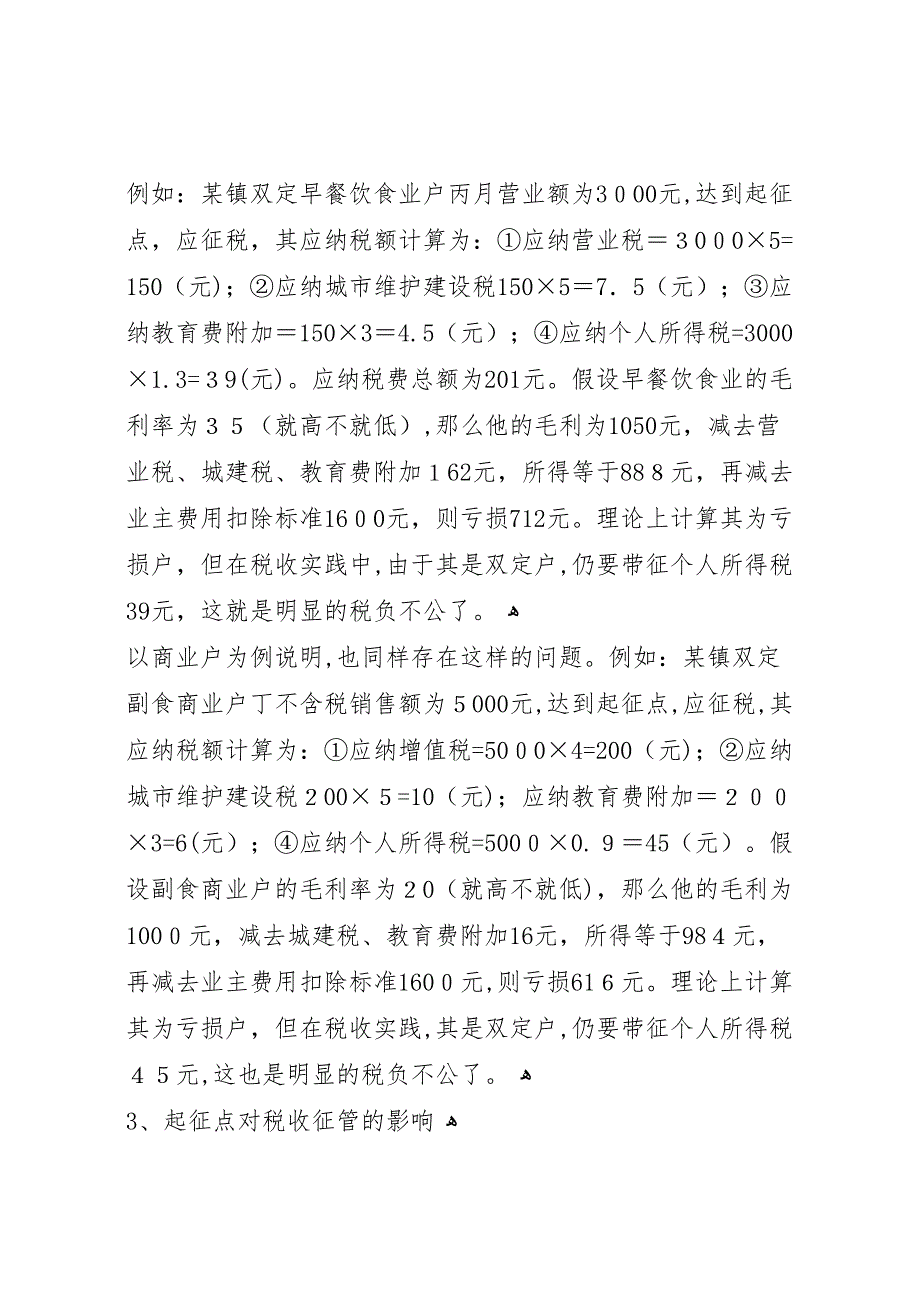 例如：某镇双定早餐饮食业户丙月营业额为3000元,达到起征
点，应征税，其应纳税额计算为：①应纳营业税＝3000×5=
150（元)；②应纳城市维护建设税150×5＝7．5（元）；③应
纳教育费附加＝150×3＝4.5（元）；④应纳个人所得税=3000
×1.3=39(元)。应纳税费总额为201元。假设早餐饮食业的毛
利率为３５（就高不就低）,那么他的毛利为1050元，减去营
业税、城建税、教育费附加１62元，所得等于88８元，再减去
业主费用扣除标准1600元，则亏损712元。理论上计算其为亏
损户，但在税收实践中,由于其是双定户,仍要带征个人所得税
39元，这就是明显的税负不公了。 ﻫ
以商业户为例说明,也同样存在这样的问题。例如：某镇双定
副食商业户丁不含税销售额为５000元,达到起征点,应征税,其
应纳税额计算为：①应纳增值税=5000×4=200（元)；②应纳
城市维护建设税２00×５=10（元)；应纳教育费附加＝２００
×3=6(元）；④应纳个人所得税=5000×0.９＝45（元）。假
设副食商业户的毛利率为２0（就高不就低)，那么他的毛利为
1000元，减去城建税、教育费附加16元，所得等于98４元，
再减去业主费用扣除标准1600元,则亏损61６元。理论上计算
其为亏损户，但在税收实践,其是双定户,仍要带征个人所得税
４５元,这也是明显的税负不公了。 ﻫ
3、起征点对税收征管的影响 ﻫ